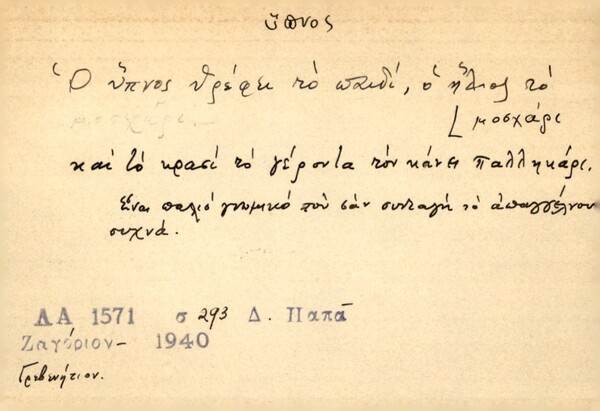 ὕπνος
Ὁ ὕπνος θρέφει τὸ παιδί, ὁ ἥλιος τὸ
μοσχάρι
[ μοσχάρι
καὶ τὸ κρασὶ τὸ γέροντα τὸν κάνει παλληκάρι.
Εἶναι παλιὸ γνωμικό ποὺ σὰν συνταγὴ τὸ ἀπαγγέλνουν
συχνά.
ΛΑ 1571 σ 293 Δ. Παπᾶ
Ζαγόριον - 1940
Γρεβενήτιον.